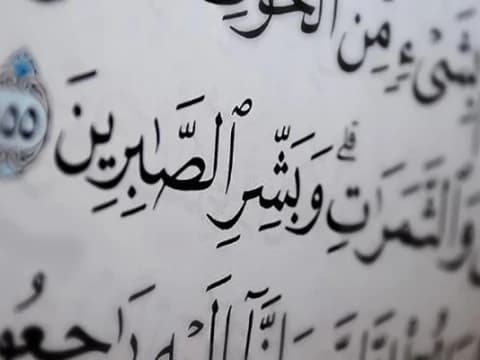 بِشَىْءٍ مِّنَ ٱلْخَوْفِ
وَٱلثَّمَرَٰتِ ۗ وَبَشِّرِ ٱلصَّٰبِرِينَ ٥٥
وَإِنَّآ إِلَيْهِ رَٰجِعُو